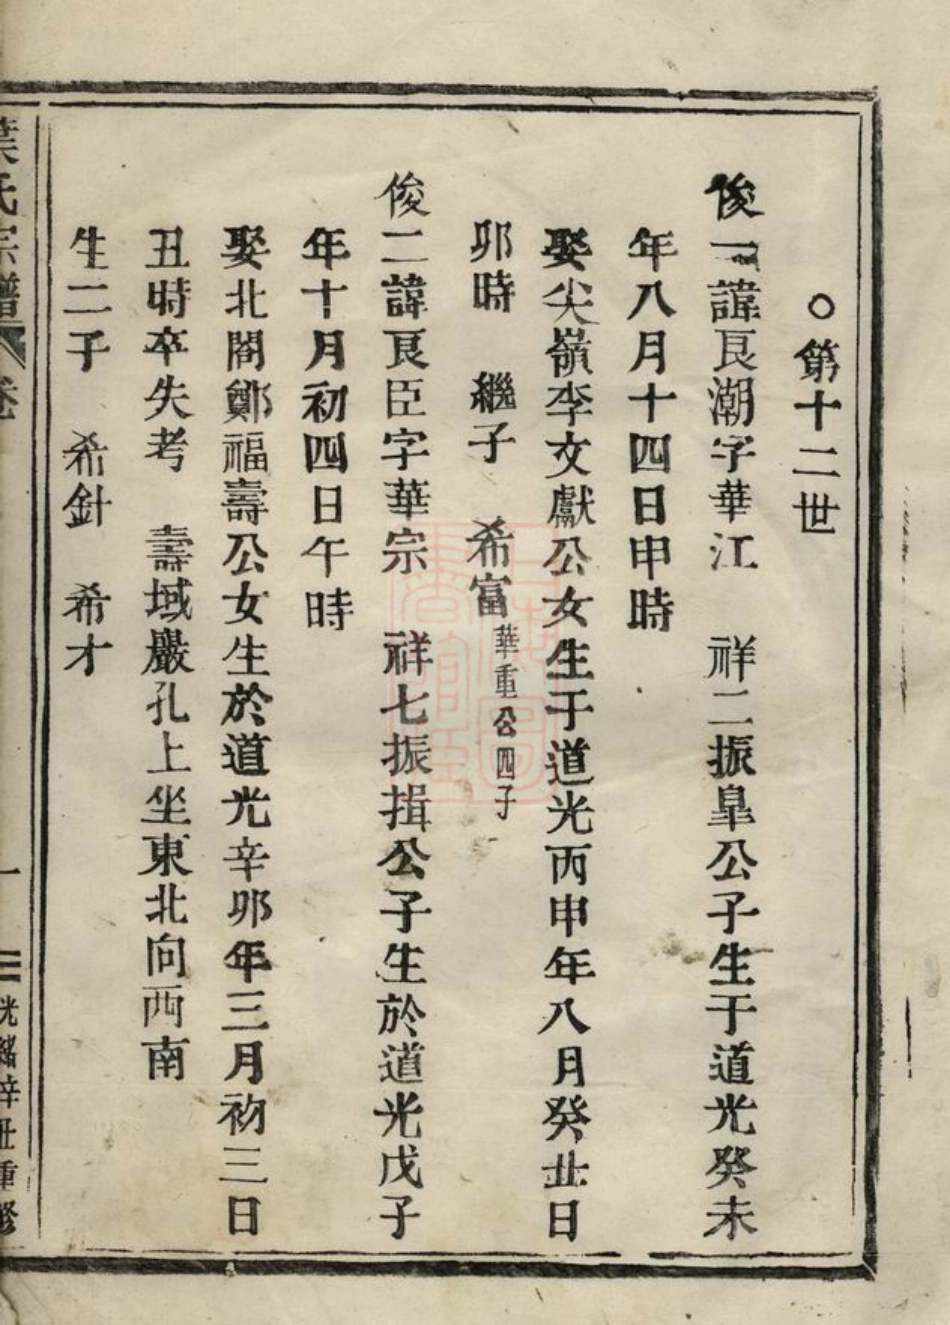 ○第十二世
俊一諱良潮字華江 祥二振臯公子生于道光癸未
年八月十四日申時
娶尖嶺李文獻公女生于道光丙申年八月癸丑日
卯時 繼子 希富華重公四子
俊二諱良臣字華宗 祥七振揖公子生於道光戊子
年十月初四日午時
娶北閣鄭福壽公女生於道光辛卯年三月初三日
丑時卒失考 壽域巖孔上坐東北向西南
生二子 希針 希才
葉氏宗譜 卷 一 光緒辛丑重修